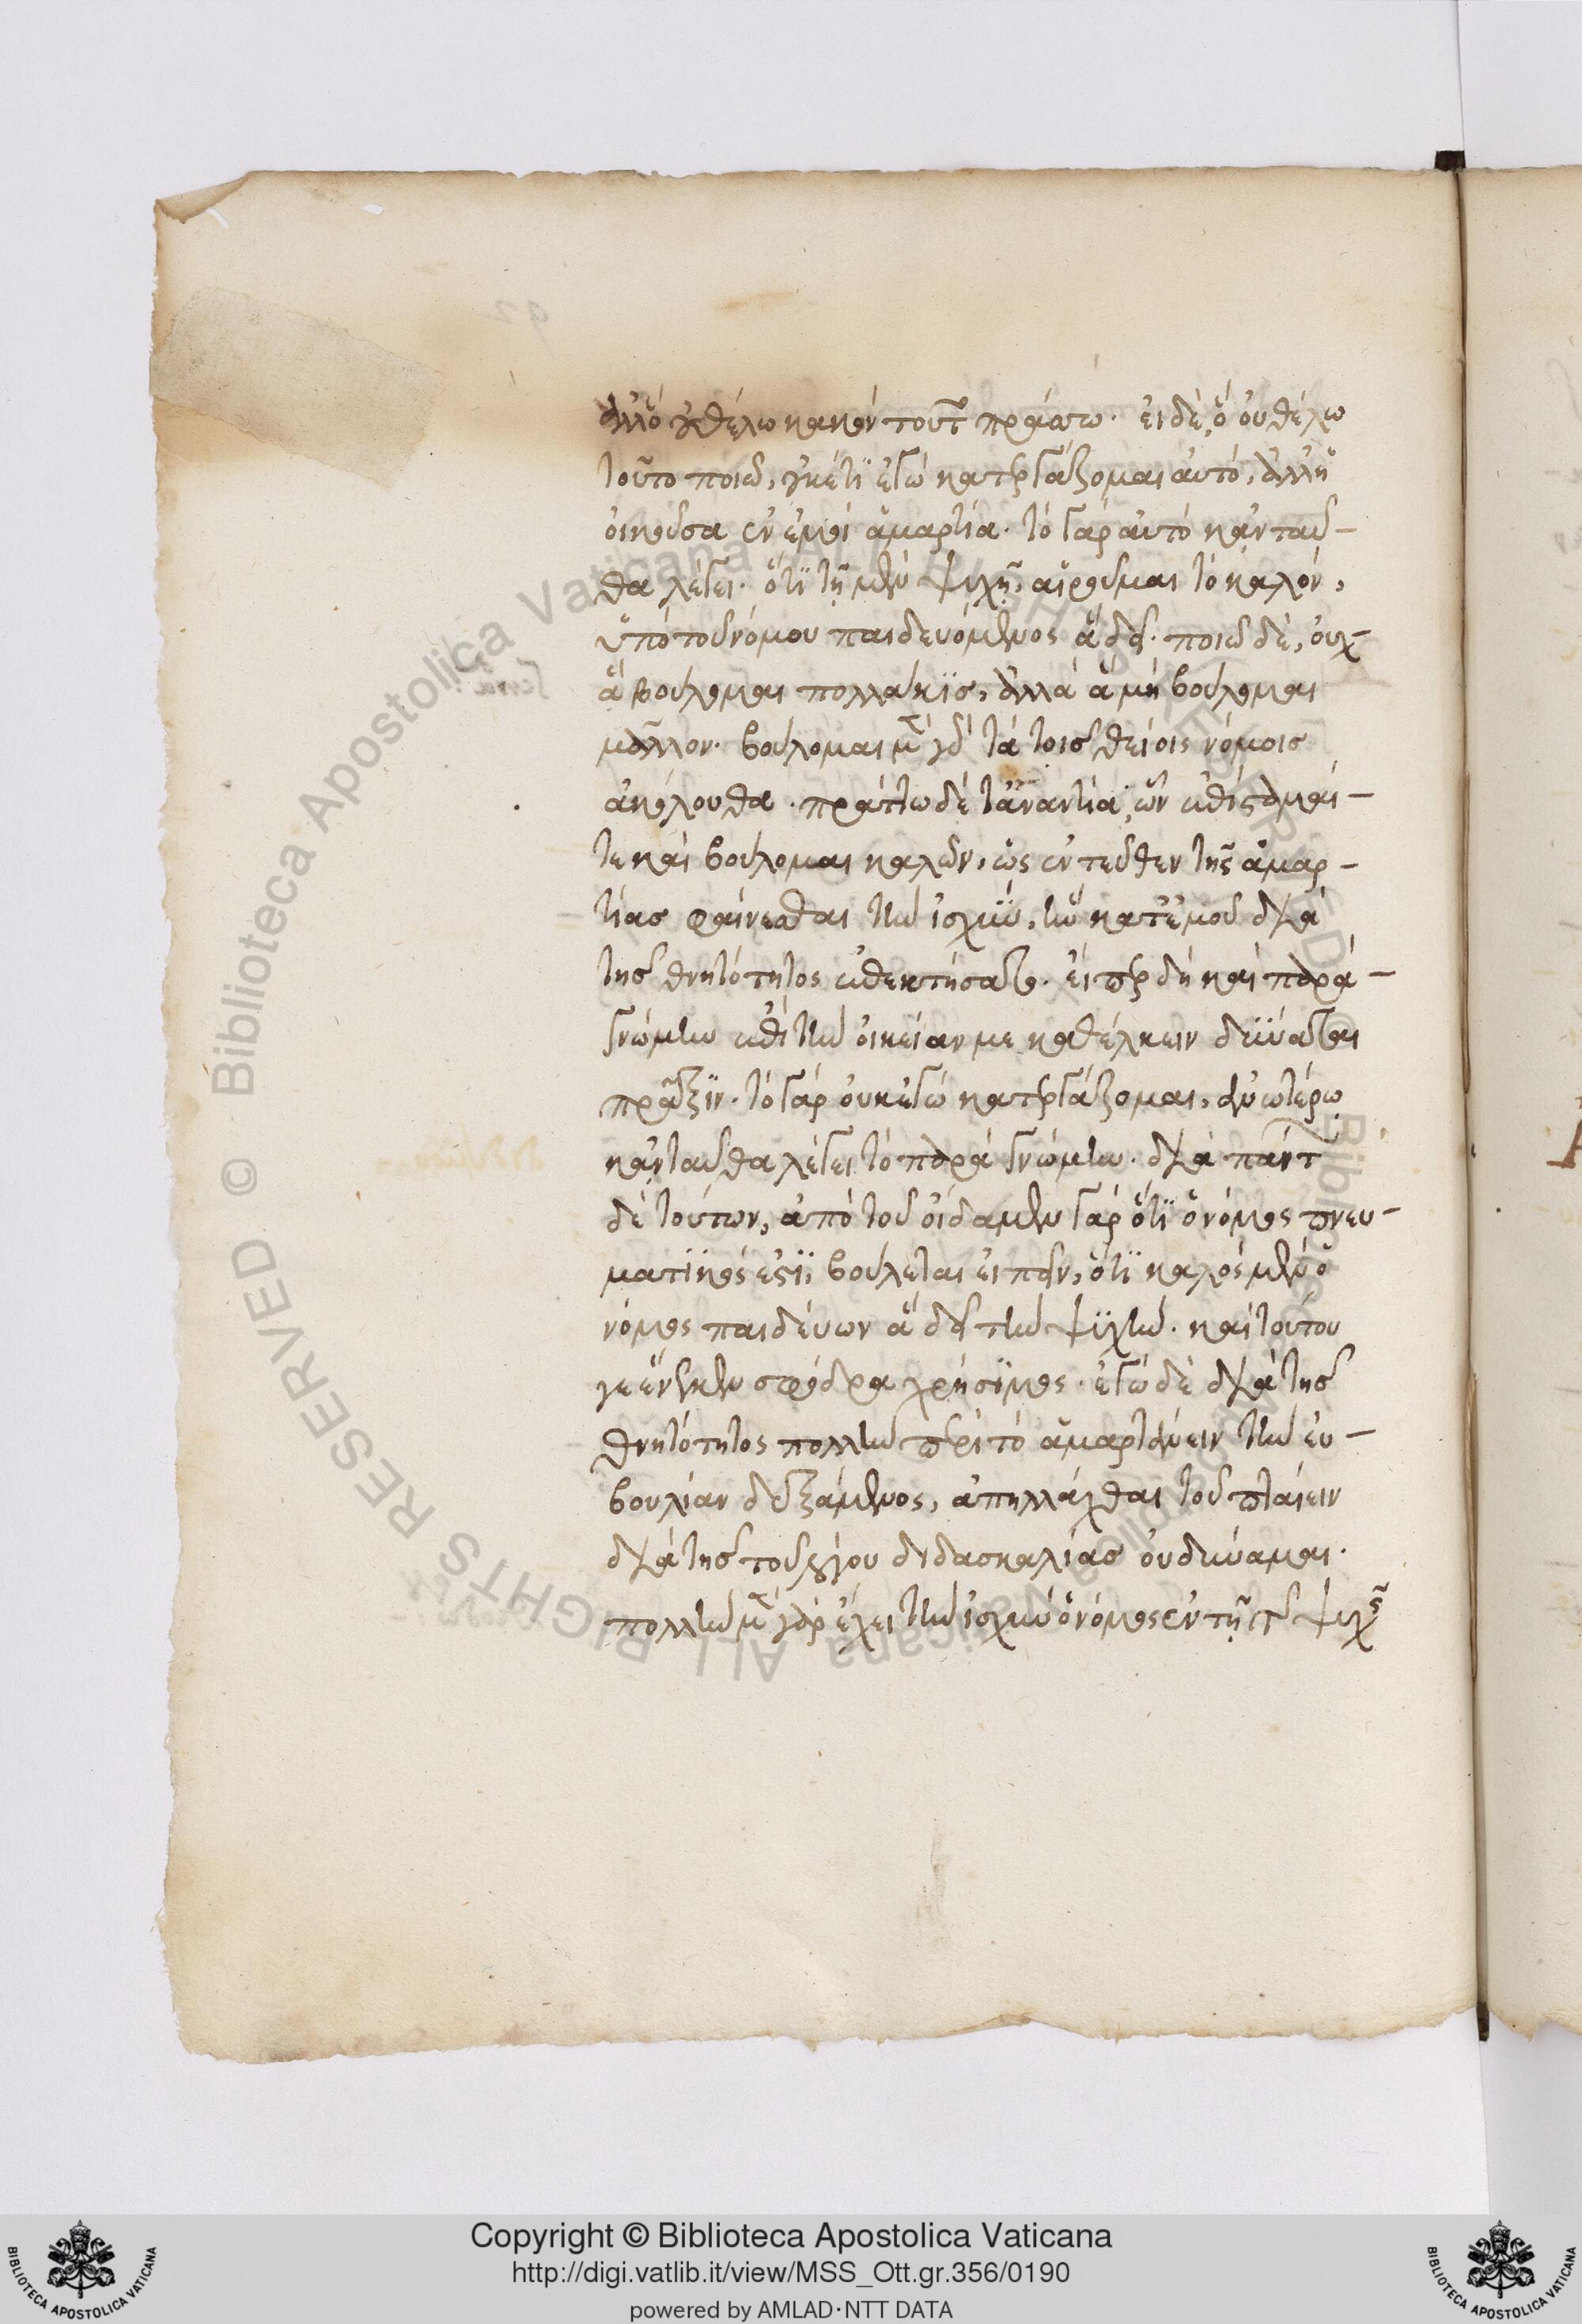 ἀλλ' ὃ οὐ θέλω κακὸν τοῦτο πράσσω· εἰ δὲ ὃ οὐ θέλω
τοῦτο ποιῶ, οὐκέτι ἐγὼ κατεργάζομαι αὐτό, ἀλλ' ἡ
οἰκοῦσα ἐν ἐμοὶ ἁμαρτία· τὸ γὰρ αὐτὸ κἀνταῦ-
θα λέγει· ὅτι τῇ μὲν ψυχῇ, αἱροῦμαι τὸ καλόν,
ὑπὸ τοῦ νόμου παιδευόμενος ἃ δεῖ· ποιῶ δὲ, οὐχ
ἃ βούλομαι πολλάκις, ἀλλὰ ἃ μὴ βούλομαι
μᾶλλον· βούλομαι μὲν γὰρ τὰ τοῖς θείοις νόμοις
ἀκόλουθα· πράττω δὲ τἀναντία, ὧν ἐπίσταμαί
τε καὶ βούλομαι καλῶν, ὡς ἐντεῦθεν τῆς ἁμαρ-
τίας φαίνεσθαι τὴν ἰσχὺν, ἣν κατ' ἐμοῦ διὰ
τῆς θνητότητος ἐπεκτήσατο· εἴπερ δὴ καὶ παρὰ
γνώμην ἐπὶ τὴν οἰκείαν με καθέλκειν δύναται
πρᾶξιν· τὸ γὰρ οὐκ ἐγὼ κατεργάζομαι, ἀνωτέρω
κἀνταῦθα λέγει τὸ παρὰ γνώμην· διὰ πάντων
δὲ τούτων, ἀπὸ τοῦ οἴδαμεν γὰρ ὅτι ὁ νόμος πνευ-
ματικός ἐστι, βούλεται εἰπεῖν, ὅτι καλὸς μὲν ὁ
νόμος παιδεύων ἃ δεῖ τὴν ψυχήν· καὶ τούτου
γε ἕνεκεν σφόδρα χρήσιμος· ἐγὼ δὲ διὰ τῆς
θνητότητος πολλὴν περὶ τὸ ἁμαρτάνειν τὴν εὐ-
κολίαν δεξάμενος, ἀπηλλάχθαι τοῦ πταίειν
διὰ τῆς τοῦ λόγου διδασκαλίας οὐ δύναμαι·
πολλὴν μὲν γὰρ ἔχει τὴν ἰσχὺν ὁ νόμος ἐν τῇ τῆς ψυχῆς
Copyright © Biblioteca Apostolica Vaticana
http://digi.vatlib.it/view/MSS_Ott.gr.356/0190
powered by AMLAD·NTT DATA